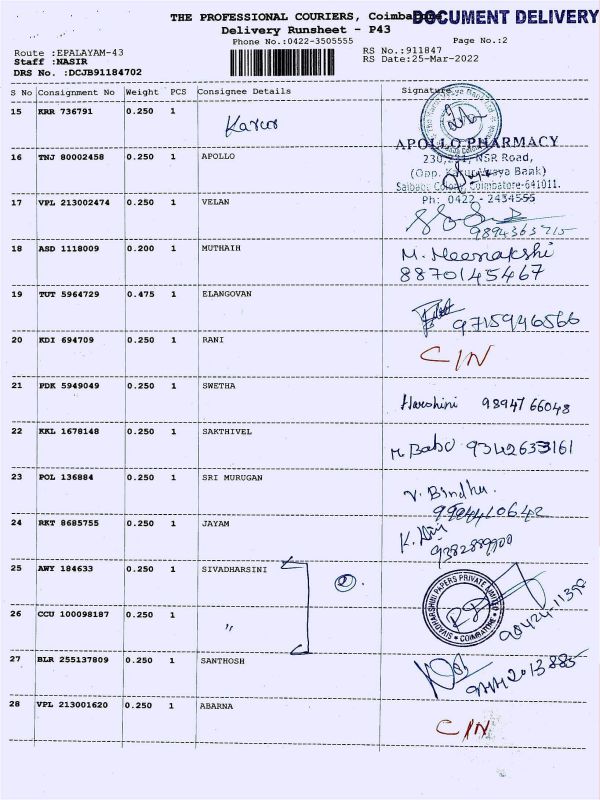 THE PROFESSIONAL COURIERS, Coimbatore
DOCUMENT DELIVERY
Delivery Runsheet - P43
Phone No.:0422-3505555 Page No.:2
Route :EPALAYAM-43 RS No.:911847
Staff :NASIR RS Date:25-Mar-2022
DRS No. :DCJB91184702
S No Consignment No Weight PCS Consignee Details Signature
15 KRR 736791 0.250 1 Karur
APOLLO PHARMACY
16 TNJ 80002458 0.250 1 APOLLO 230,231, NSR Road,
(Opp. Karur Vysya Bank)
Saibaba Colony, Coimbatore-641011.
Ph: 0422 - 2434555
17 VPL 213002474 0.250 1 VELAN
9894363715
18 ASD 1118009 0.200 1 MUTHAIH M. Meenakshi
8870145467
19 TUT 5964729 0.475 1 ELANGOVAN
9715946566
20 KDI 694709 0.250 1 RANI C/N
21 PDK 5949049 0.250 1 SWETHA Harshini 98947 66048
22 KKL 1678148 0.250 1 SAKTHIVEL M Babo 9342633161
23 POL 136884 0.250 1 SRI MURUGAN V. Bindhu.
24 RKT 8685755 0.250 1 JAYAM K.
9382889900
25 AWY 184633 0.250 1 SIVADHARSINI 2.
SIVADHARSHINI PAPERS PRIVATE LIMITED
COIMBATORE
26 CCU 100098187 0.250 1 "
27 BLR 255137809 0.250 1 SANTHOSH
28 VPL 213001620 0.250 1 ABARNA C/N